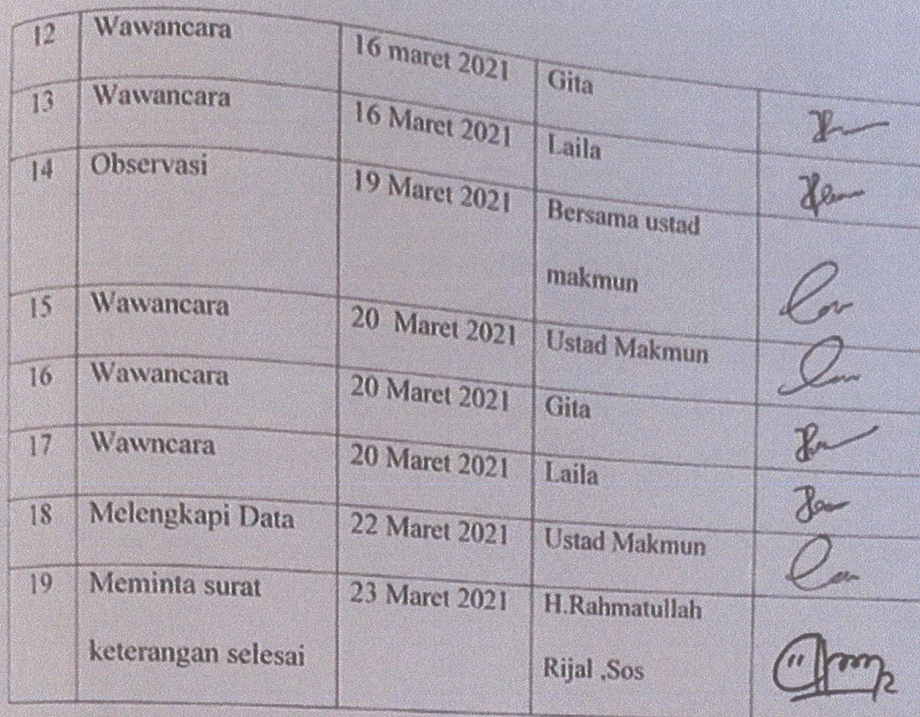 12 Wawancara 16 maret 2021 Gita
13 Wawancara 16 Maret 2021 Laila
14 Observasi 19 Maret 2021 Bersama ustad
makmun
15 Wawancara 20 Maret 2021 Ustad Makmun
16 Wawancara 20 Maret 2021 Gita
17 Wawncara 20 Maret 2021 Laila
18 Melengkapi Data 22 Maret 2021 Ustad Makmun
19 Meminta surat 23 Maret 2021 H.Rahmatullah
keterangan selesai Rijal ,Sos